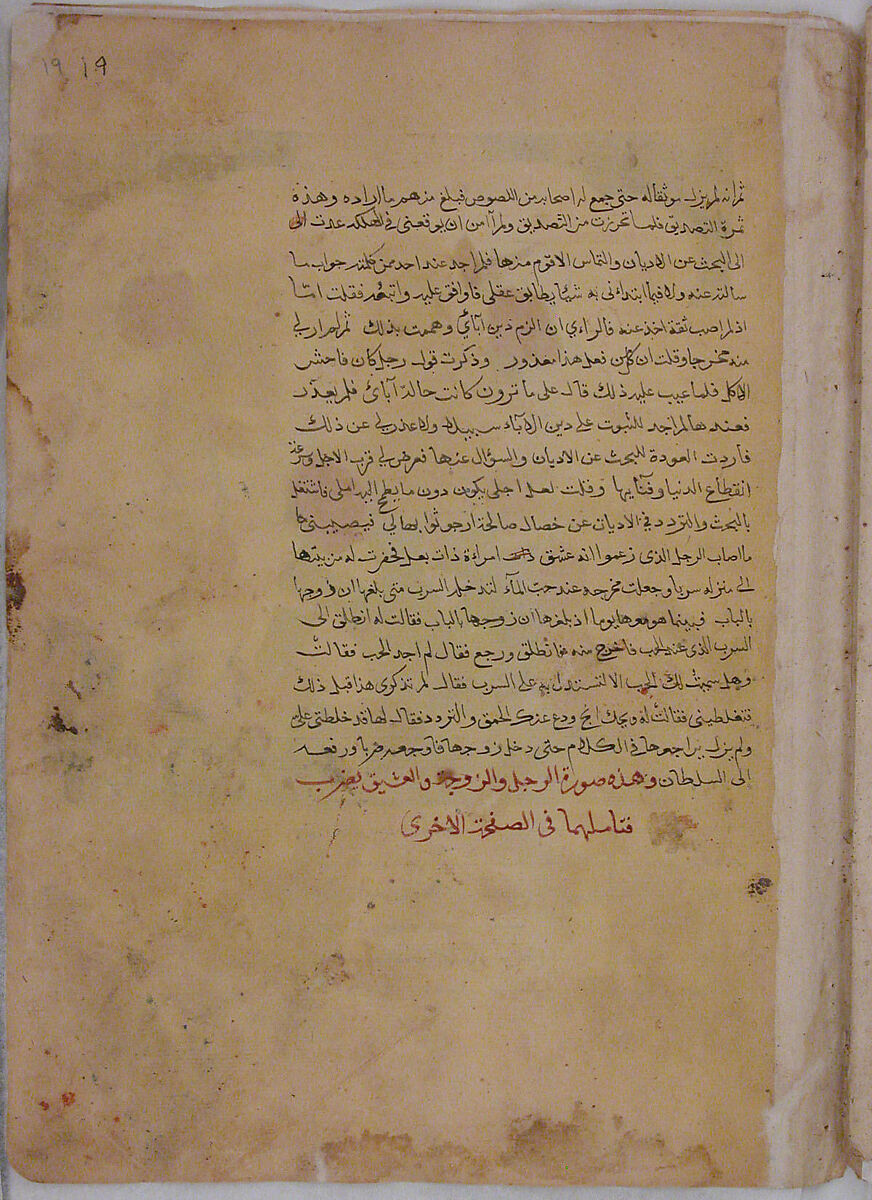 ١٩ ١٩
ثم انه لم يزل موثقا له حتى جمع له اصحابه من اللصوص فبلغ منهم ما اراده وهذه
ثمرة التصديق فلما تحرزت من التصديق ولم آمن ان يوقعني في الهلكه عدت الى
الى البحث عن الاديان والتماس الاقوم منها فلم اجد عند احد من كلمته جواب ما
سالته عنه ولا فيما ابتداني به شيئا يطابق عقلي فاوافق عليه واتبعه فقلت امّا
اذ لم اصب ثقة اخذ عنه فالراءي ان الزم دين آبائي وهممت بذلك ثم لم ار لي
منه مخرجا وقلت ان كل من فعل هذا معذور وذكرت قول رجل كان فاحش
الاكل فلما عيب عليه ذلك قال على ما ترون كانت حالة آبائ فلم يعذّر
فعندها لم اجد للثبوت على دين الاآباء سبيلا ولا عذر لي عن ذلك
فاردت العودة للبحث عن الاديان والسؤال عنها فعرض لي قرب الاجل وسرعة
انقطاع الدنيا وفنآيها وقلت لعل اجلي يكون دون ما يطمح اليه املي فاشتغل
بالبحث والتردد في الاديان عن خصال صالحة ارجو ثوابها لي فيصيبني ما
ما اصاب الرجل الذي زعموا انه عشق امراءة ذات بعل فحفرت له من بيتها
الى منزله سربا وجعلت مخرجه عند حب المآء لتدخله السرب متى بلغها ان زوجها
بالباب فبينما هو معها يوما اذ بلغها ان زوجها بالباب فقالت له انطلق الى
السرب الذي عند الحب فاخرج منه فانطلق ورجع فقال لم اجد الحب فقالت
وهل سميت لك الحب الا لتستدل به على السرب فقال لم تذكرى هذا قبل ذلك
فتغلطيني فقالت له ويحك انج ودع عنك الحمق والتردد فقال لها قد خلطتي علىّ
ولم يزل يراجعها في الكلام حتى دخل زوجها فاوجعه ضربا ورفعه
الى السلطان وهذه صورة الرجل والزوجة والعشيق يضرب
فتاملهما فى الصفحة الاخرى